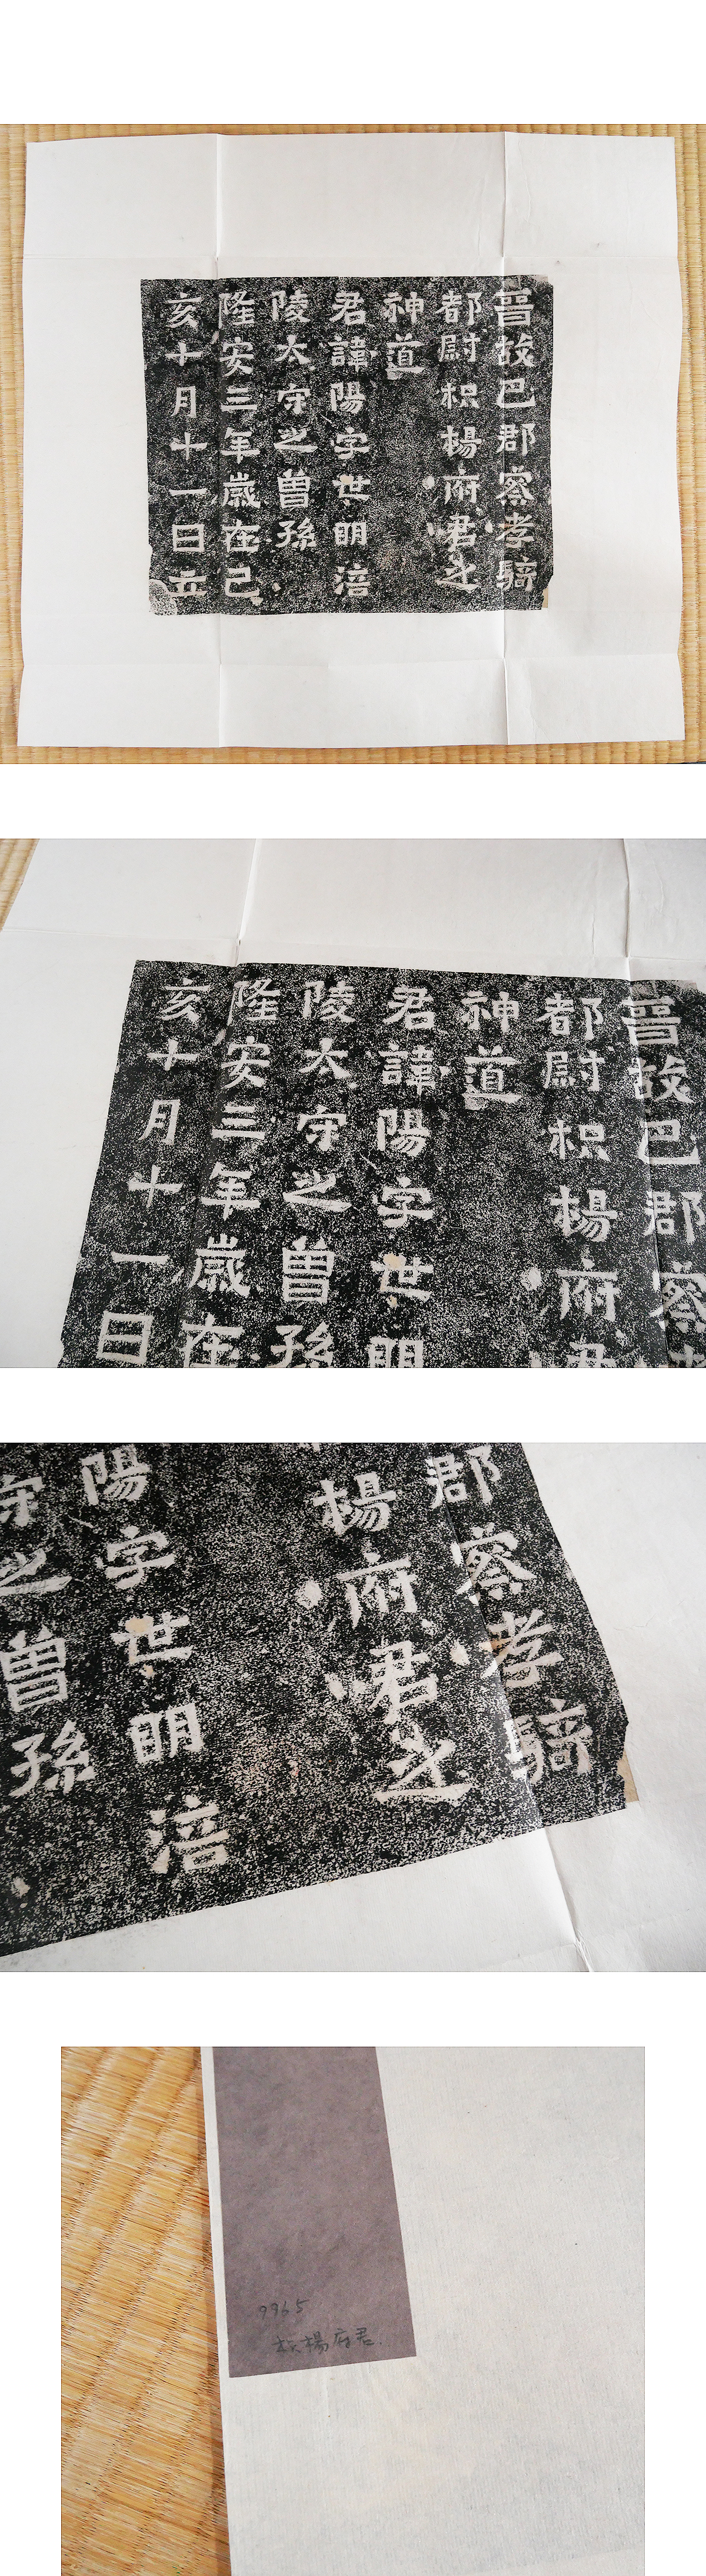 晉故巴郡察孝騎
都尉枳楊府君之
神道
君諱陽字世明涪
陵太守之曾孫
隆安三年歲在己
亥十月十一日立
晉故巴郡察
都尉枳楊府君
神道
君諱陽字世明
陵太守之曾孫
隆安三年歲在
亥十月十一日
郡察孝騎
楊府君之
陽字世明涪
守之曾孫
9965
楊府君